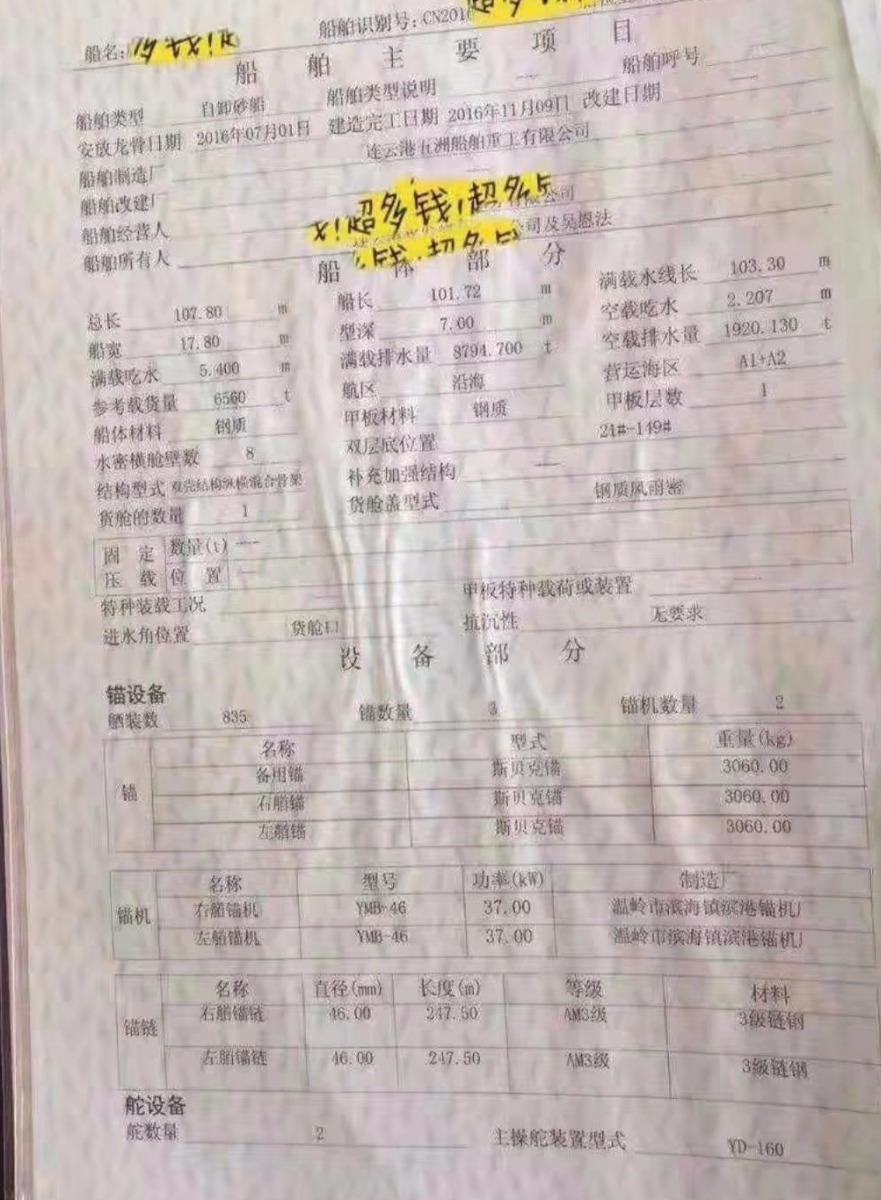 船名: 多钱!超
船舶识别号: CN201 超多
船舶主要项目
船舶类型 自卸砂船 船舶类型说明 — 船舶呼号
安放龙骨日期 2016年07月01日 建造完工日期 2016年11月09日 改建日期 —
船舶制造厂 连云港五洲船舶重工有限公司
船舶改建厂 —
船舶经营人 !超多钱!超多 有限公司
船舶所有人 钱!超多钱 公司及吴恩法
船体部分
总长 107.80 m 船长 101.72 m 满载水线长 103.30 m
船宽 17.80 m 型深 7.00 m 空载吃水 2.207 m
满载吃水 5.400 m 满载排水量 8794.700 t 空载排水量 1920.130 t
参考载货量 6560 t 航区 沿海 营运海区 A1+A2
船体材料 钢质 甲板材料 钢质 甲板层数 1
水密横舱壁数 8 双层底位置 21#-149#
结构型式 双壳结构纵横混合骨架 补充加强结构 —
货舱的数量 1 货舱盖型式 钢质风雨密
固定压载 数量(t) —
位置 —
特种装载工况 甲板特种载荷或装置
进水角位置 货舱口 抗沉性 无要求
设备部分
锚设备
舾装数 835 锚数量 3 锚机数量 2
锚 名称 型式 重量(kg)
备用锚 斯贝克锚 3060.00
右艏锚 斯贝克锚 3060.00
左艏锚 斯贝克锚 3060.00
锚机 名称 型号 功率(kW) 制造厂
右艏锚机 YMB-46 37.00 温岭市滨海镇滨港锚机厂
左艏锚机 YMB-46 37.00 温岭市滨海镇滨港锚机厂
锚链 名称 直径(mm) 长度(m) 等级 材料
右艏锚链 46.00 247.50 AM3级 3级链钢
左艏锚链 46.00 247.50 AM3级 3级链钢
舵设备
舵数量 2 主操舵装置型式 YD-160